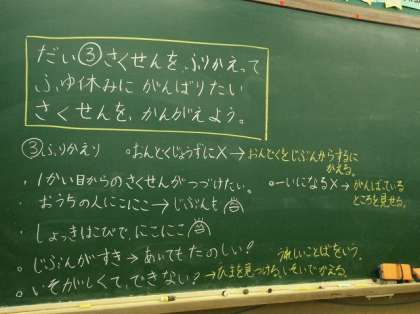 だい③さくせんを、ふりかえって
ふゆ休みに がんばりたい
さくせんを、かんがえよう。
③ふりかえり 。おんどくじょうずに×→おんどくをじぶんからするに
かえる。
・1かい目からのさくせんがつづけたい。 。一いになる×→がんばっている
ところを見せる。
・おうちの人にここにこ→じぶんも
・しょっきはこびで、にこにこ
・じぶんがすき→あいてもたのしい! うれしいことばをいう。
・いそがしくて、できない?→ひまを見つける。いそいでかえる。